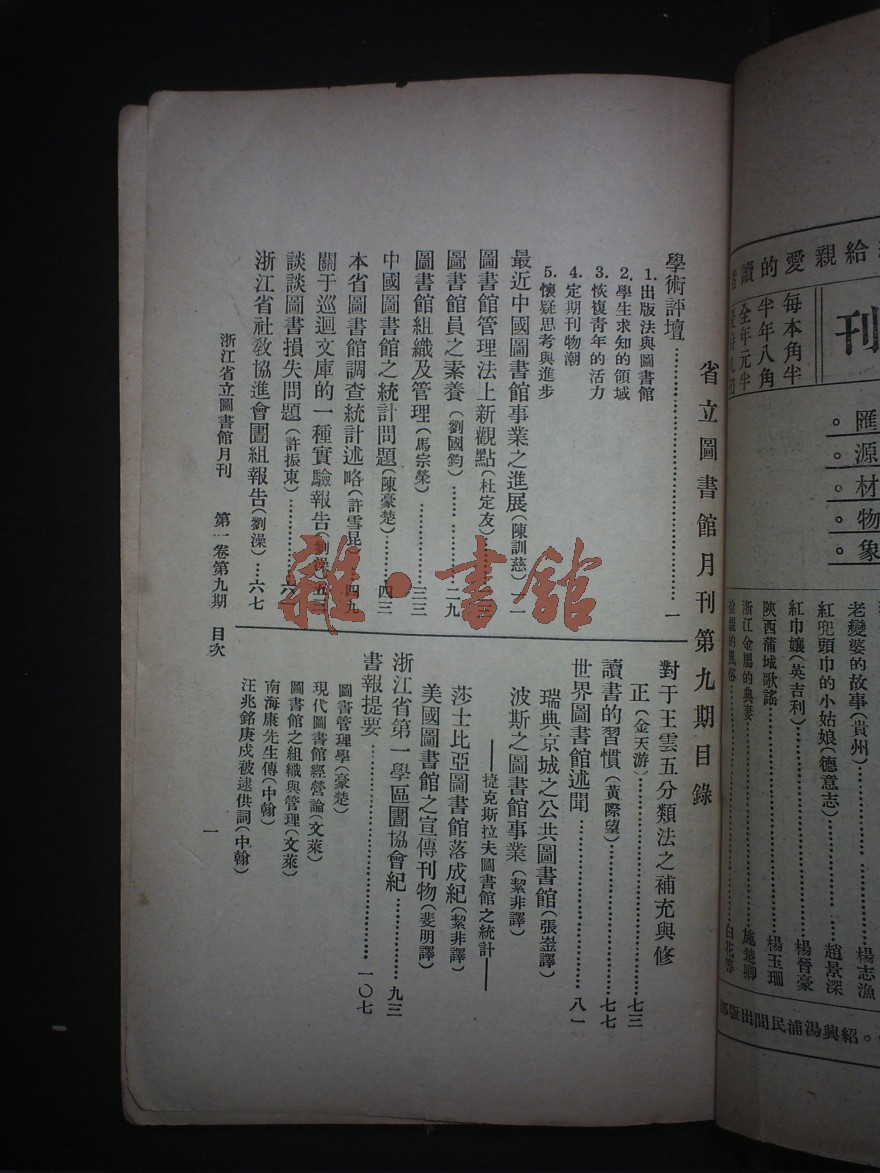 省立圖書館月刊第九期目錄
學術評壇……一
1. 出版法與圖書館
2. 學生求知的領域
3. 恢複青年的活力
4. 定期刊物潮
5. 懷疑思考與進步
最近中國圖書館事業之進展(陳訓慈)…一一
圖書館管理法上新觀點(杜定友)
圖書館員之素養(劉國鈞)……二九
圖書館組織及管理(馬宗榮)……三三
中國圖書館之統計問題(陳豪楚)……四三
本省圖書館調查統計述略(許雪昆)…四九
關于巡迴文庫的一種實驗報告(劉澡)五三
談談圖書損失問題(許振東)……六
浙江省社敎協進會圕組報告(劉澡)…六七
對于王雲五分類法之補充與修
正(金天游)……七三
讀書的習慣(黃際望)……七七
世界圖書館述聞……八一
瑞典京城之公共圖書館(張崟譯)
波斯之圖書館事業(絜非譯)
——捷克斯拉夫圖書館之統計——
莎士比亞圖書館落成紀(絜非譯)
美國圖書館之宣傳刊物(斐明譯)
浙江省第一學區圕協會紀……九三
書報提要……一〇七
圖書管理學(豪楚)
現代圖書館經營論(文萊)
圖書館之組織與管理(文萊)
南海康先生傳(中翰)
汪兆銘庚戌被逮供詞(中翰)
浙江省立圖書館月刊 第一卷第九期 目次
一
給親愛的讀
刊
每本角半
半年八角
全年元半
匯。
源。
材。
物。
象。
老變婆的故事(貴州)……楊志漁
紅兜頭巾的小姑娘(德意志)…趙景深
紅巾孃(英吉利)……楊晉豪
陝西蒲城歌謠……楊玉珊
浙江金屬的典妻……施楚卿
搶親的風俗……白花
。紹興湯浦民間出版部
雜·書館